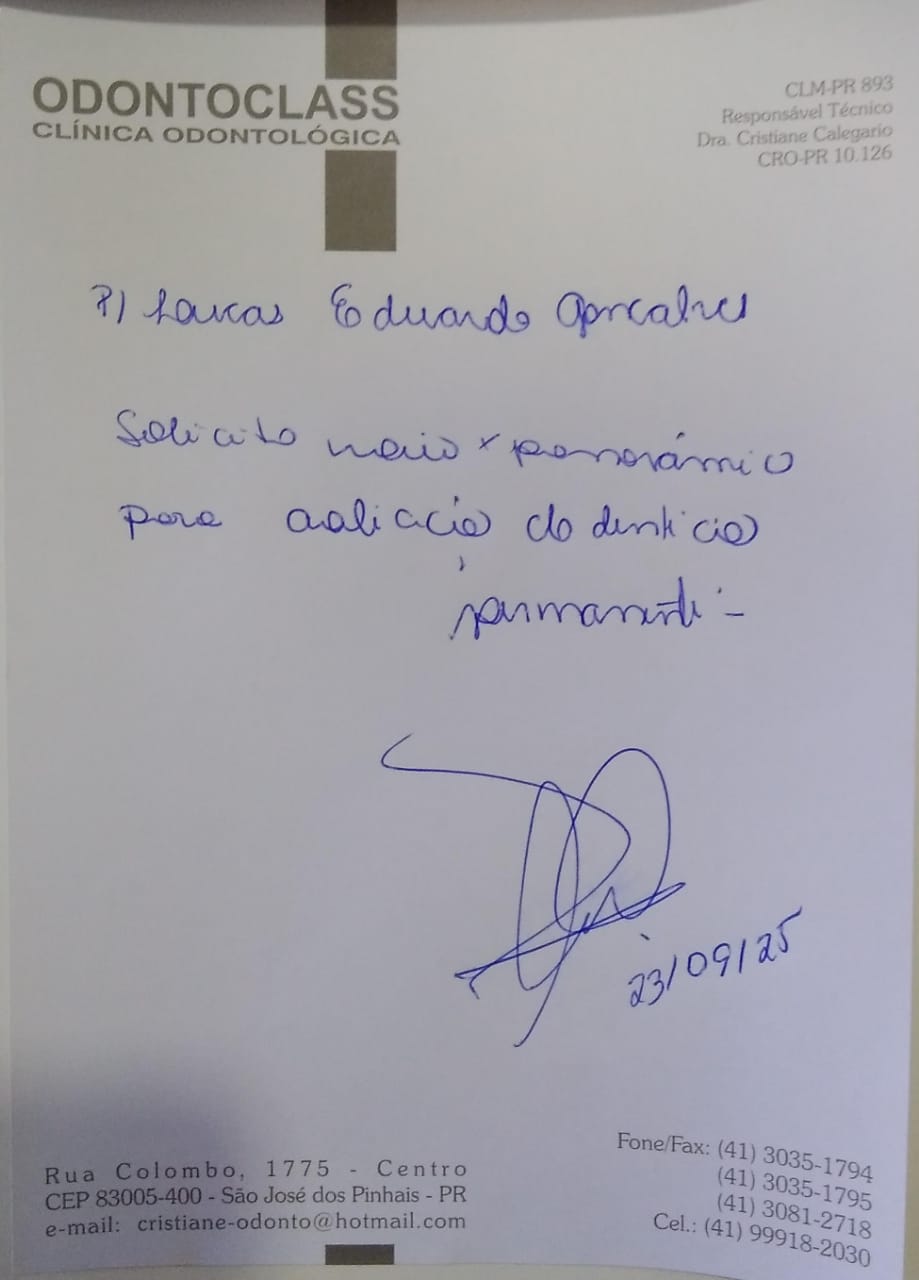 ODONTOCLASS
CLÍNICA ODONTOLÓGICA
CLM-PR 893
Responsável Técnico
Dra. Cristiane Calegario
CRO-PR 10.126
P/ Lucas Eduardo Gonçalves
Solicito raio x panorâmico
para avaliação da dentição
permanente.
23/09/25
Rua Colombo, 1775 - Centro
CEP 83005-400 - São José dos Pinhais - PR
e-mail: cristiane-odonto@hotmail.com
Fone/Fax: (41) 3035-1794
(41) 3035-1795
(41) 3081-2718
Cel.: (41) 99918-2030